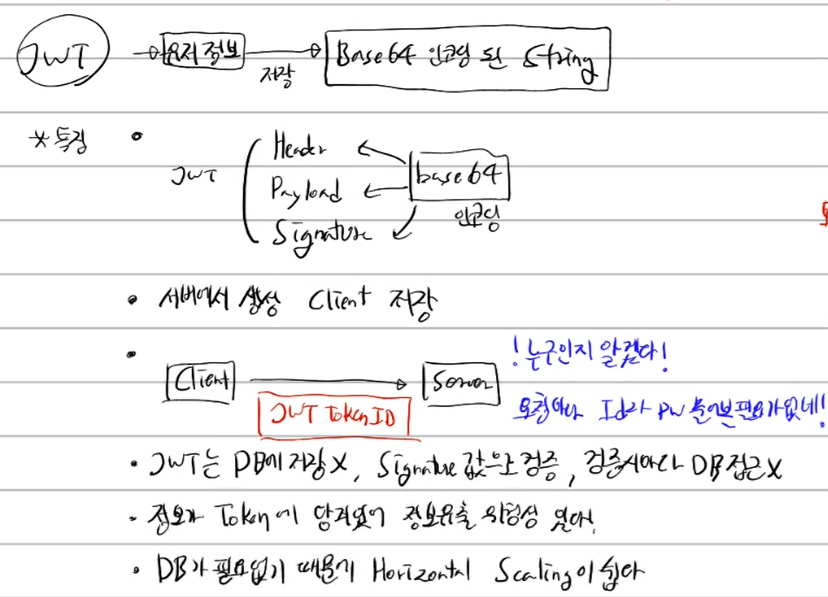 JWT → 유저정보 → 저장 Base64 인코딩 된 String
* 특징
JWT
Header
Payload
Signature
base64
인코딩
• 서버에서 생성 Client 저장
• Client → Server
JWT Token ID
!누구인지 알겠다!
요청마다 Id와 PW 물어볼 필요가 없네!
• JWT는 DB에 저장X, Signature 값으로 검증, 검증시마다 DB접근X
• 정보가 Token에 담겨있어 정보유출 위험성 있다.
• DB가 필요없기 때문에 Horizontal Scaling이 쉽다